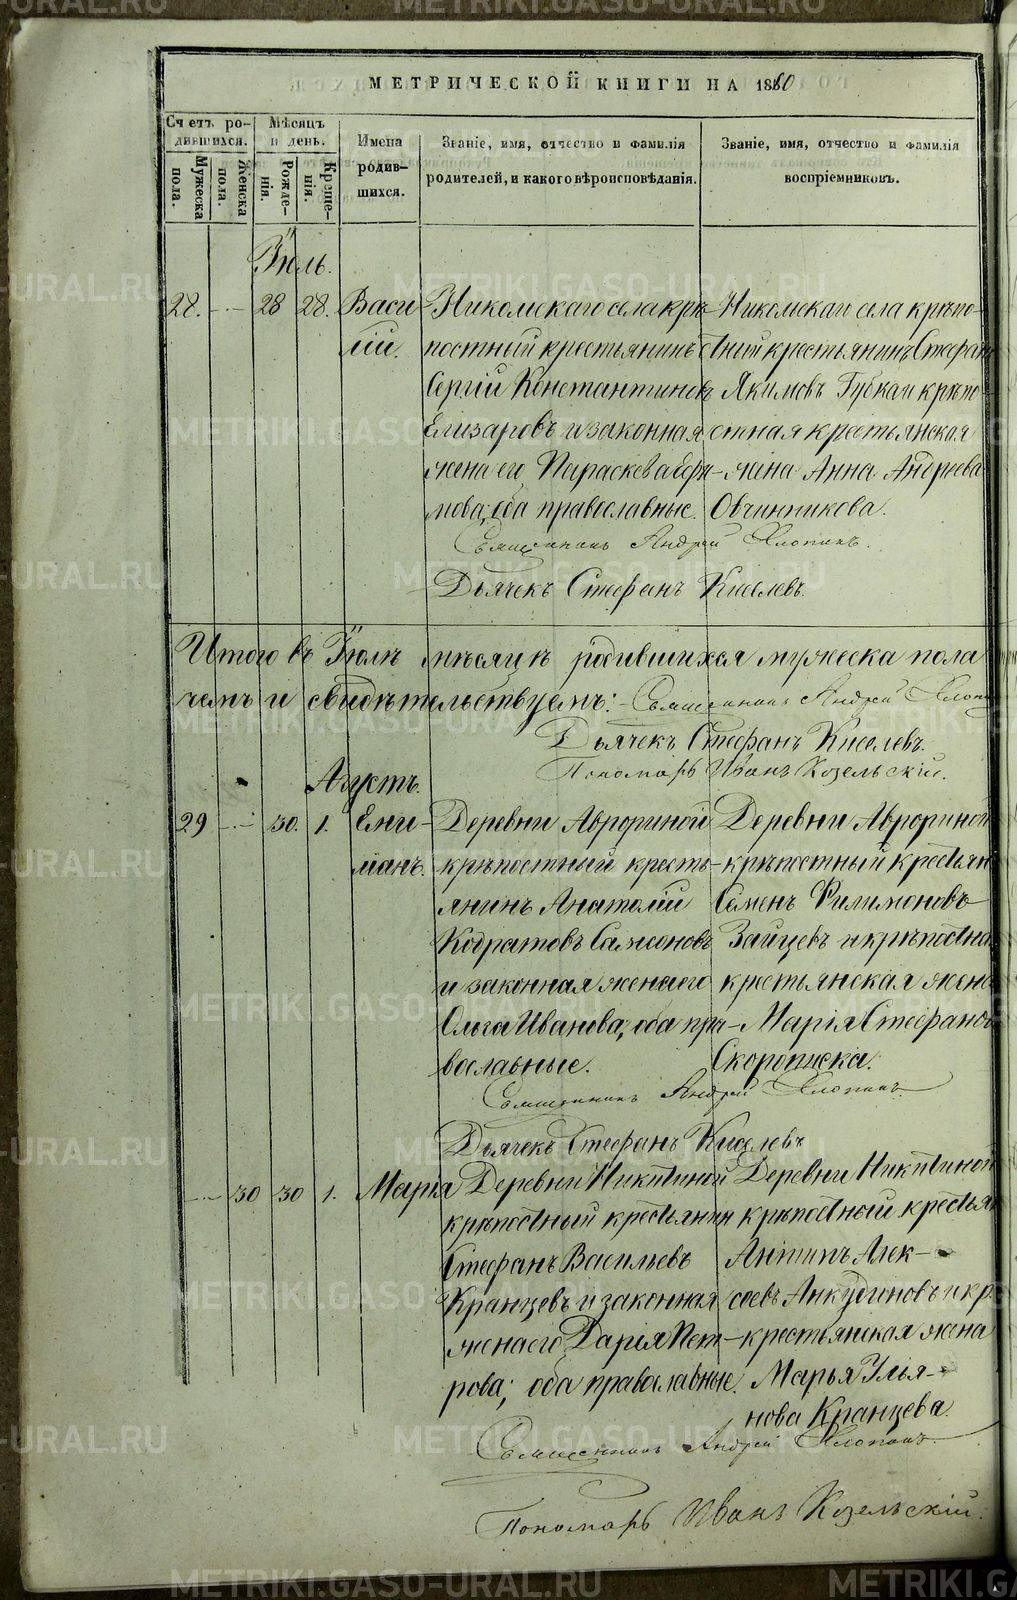 МЕТРИЧЕСКОЙ КНИГИ НА 1860
Счетъ родившихся.
Мѣсяцъ и день.
Имена родившихся.
Званіе, имя, отчество и фамилія родителей, и какого вѣроисповѣданія.
Званіе, имя, отчество и фамилія воспріемниковъ.
Мужеска пола.
Женска пола.
Рожденія.
Крещенія.
Іюль.
28. 28 28. Васи
лій.
Никомскаго села крѣ
постный крестьянинъ
Сергій Константиновъ
Елизаровъ и законная
жена его Параскева
мова, оба православные.
Никомскаго села крѣпо-
стный крестьянинъ Стефанъ
Якимовъ Губкаи крѣпо-
стная крестьянская
жена Анна Андреева
Овчинникова.
Священникъ Андрей Хлопинъ.
Дьячекъ Стефанъ Киселевъ.
Итого въ Іюлѣ мѣсяцѣ родившихся мужеска пола
чемъ и свидѣтельствуемъ: Священникъ Андрей
Дьячекъ Стефанъ Киселевъ.
Пономарь Иванъ Козельскій.
Августъ.
29 30. 1. Еми-
ліанъ.
Деревни Аврориной
крѣпостный кресть-
янинъ Анатолій
Кодратовъ Самсоновъ
и законная жена его
Ольга Иванова, оба пра-
вославные.
Деревни Аврориной
крѣпостный крестьян
Семенъ Филимоновъ
Зайцевъ и крѣпостна
крестьянская жена
Марія Стефанов
Священникъ Андрей Хлопинъ.
Дьячекъ Стефанъ Киселевъ
30 30 1. Марія
Деревни Никитиной
крѣпостный крестьянин
Стефанъ Васильевъ
Кранцевъ и законная
жена его Дарія Пет-
рова; оба православные.
Деревни Никитиной
крѣпостный крестьян
Антипъ Алек-
сѣевъ Анкудиновъ и кр.
крестьянская жена
Марья Улья-
нова Кранцева.
Священникъ Андрей Хлопинъ.
Пономарь Иванъ Козельскій.
METRIKI.GASO-URAL.RU